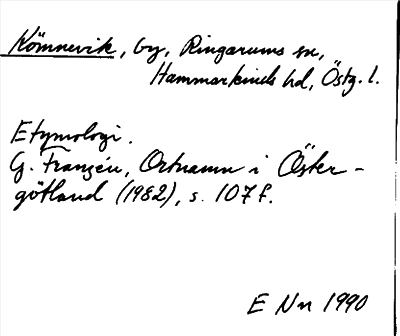 Kömnevik, by, Ringarums sn,
Hammarkinds hd, Östg. l.
Etymologi.
G. Franzén, Ortnamn i Öster-
götland (1982), s. 107 f.
E Nn 1990